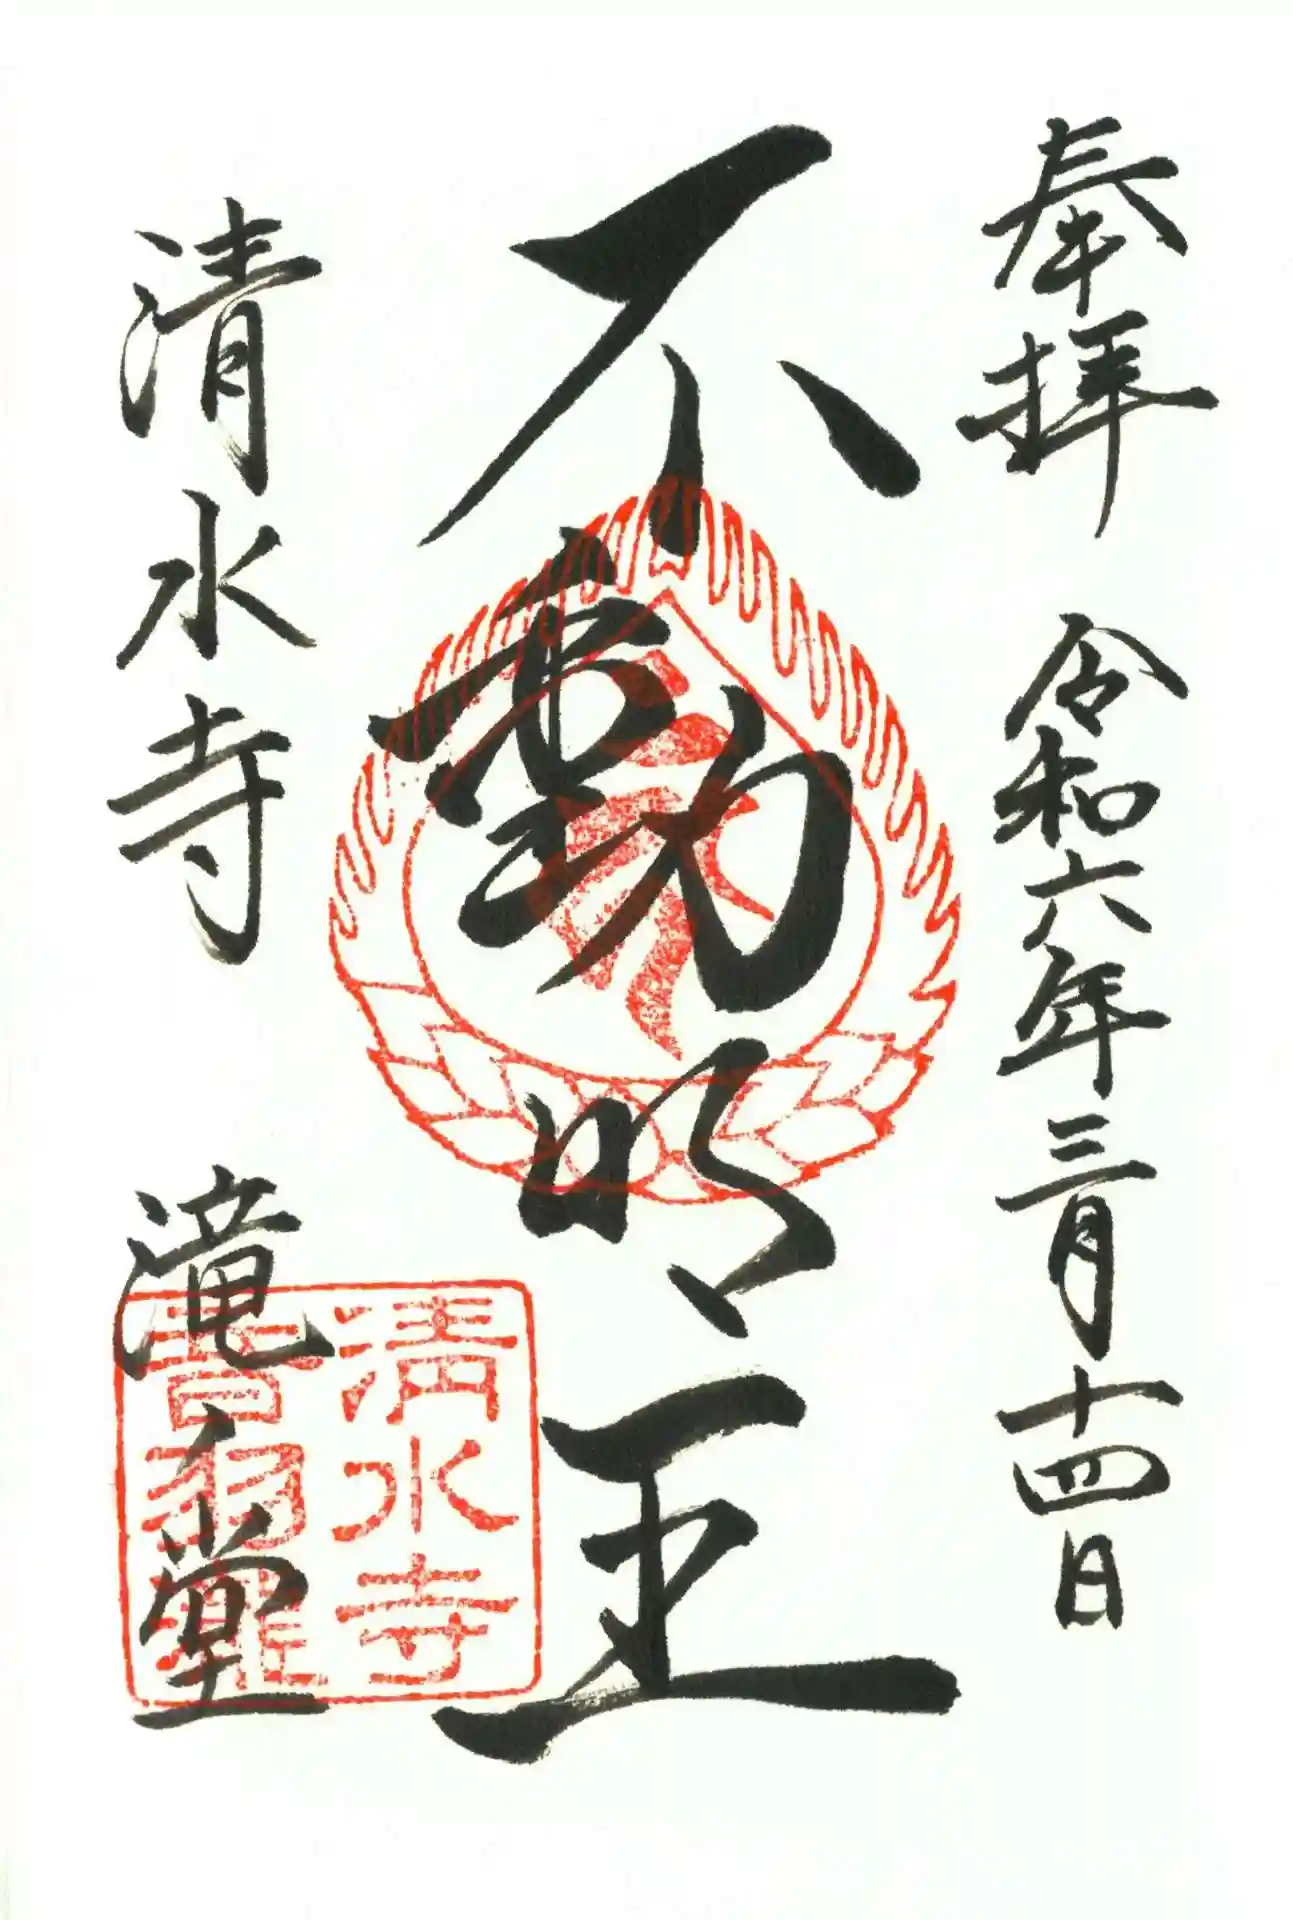 奉拝 令和六年三月十四日
不動明王
清水寺 滝ノ堂
清水寺
音羽瀧